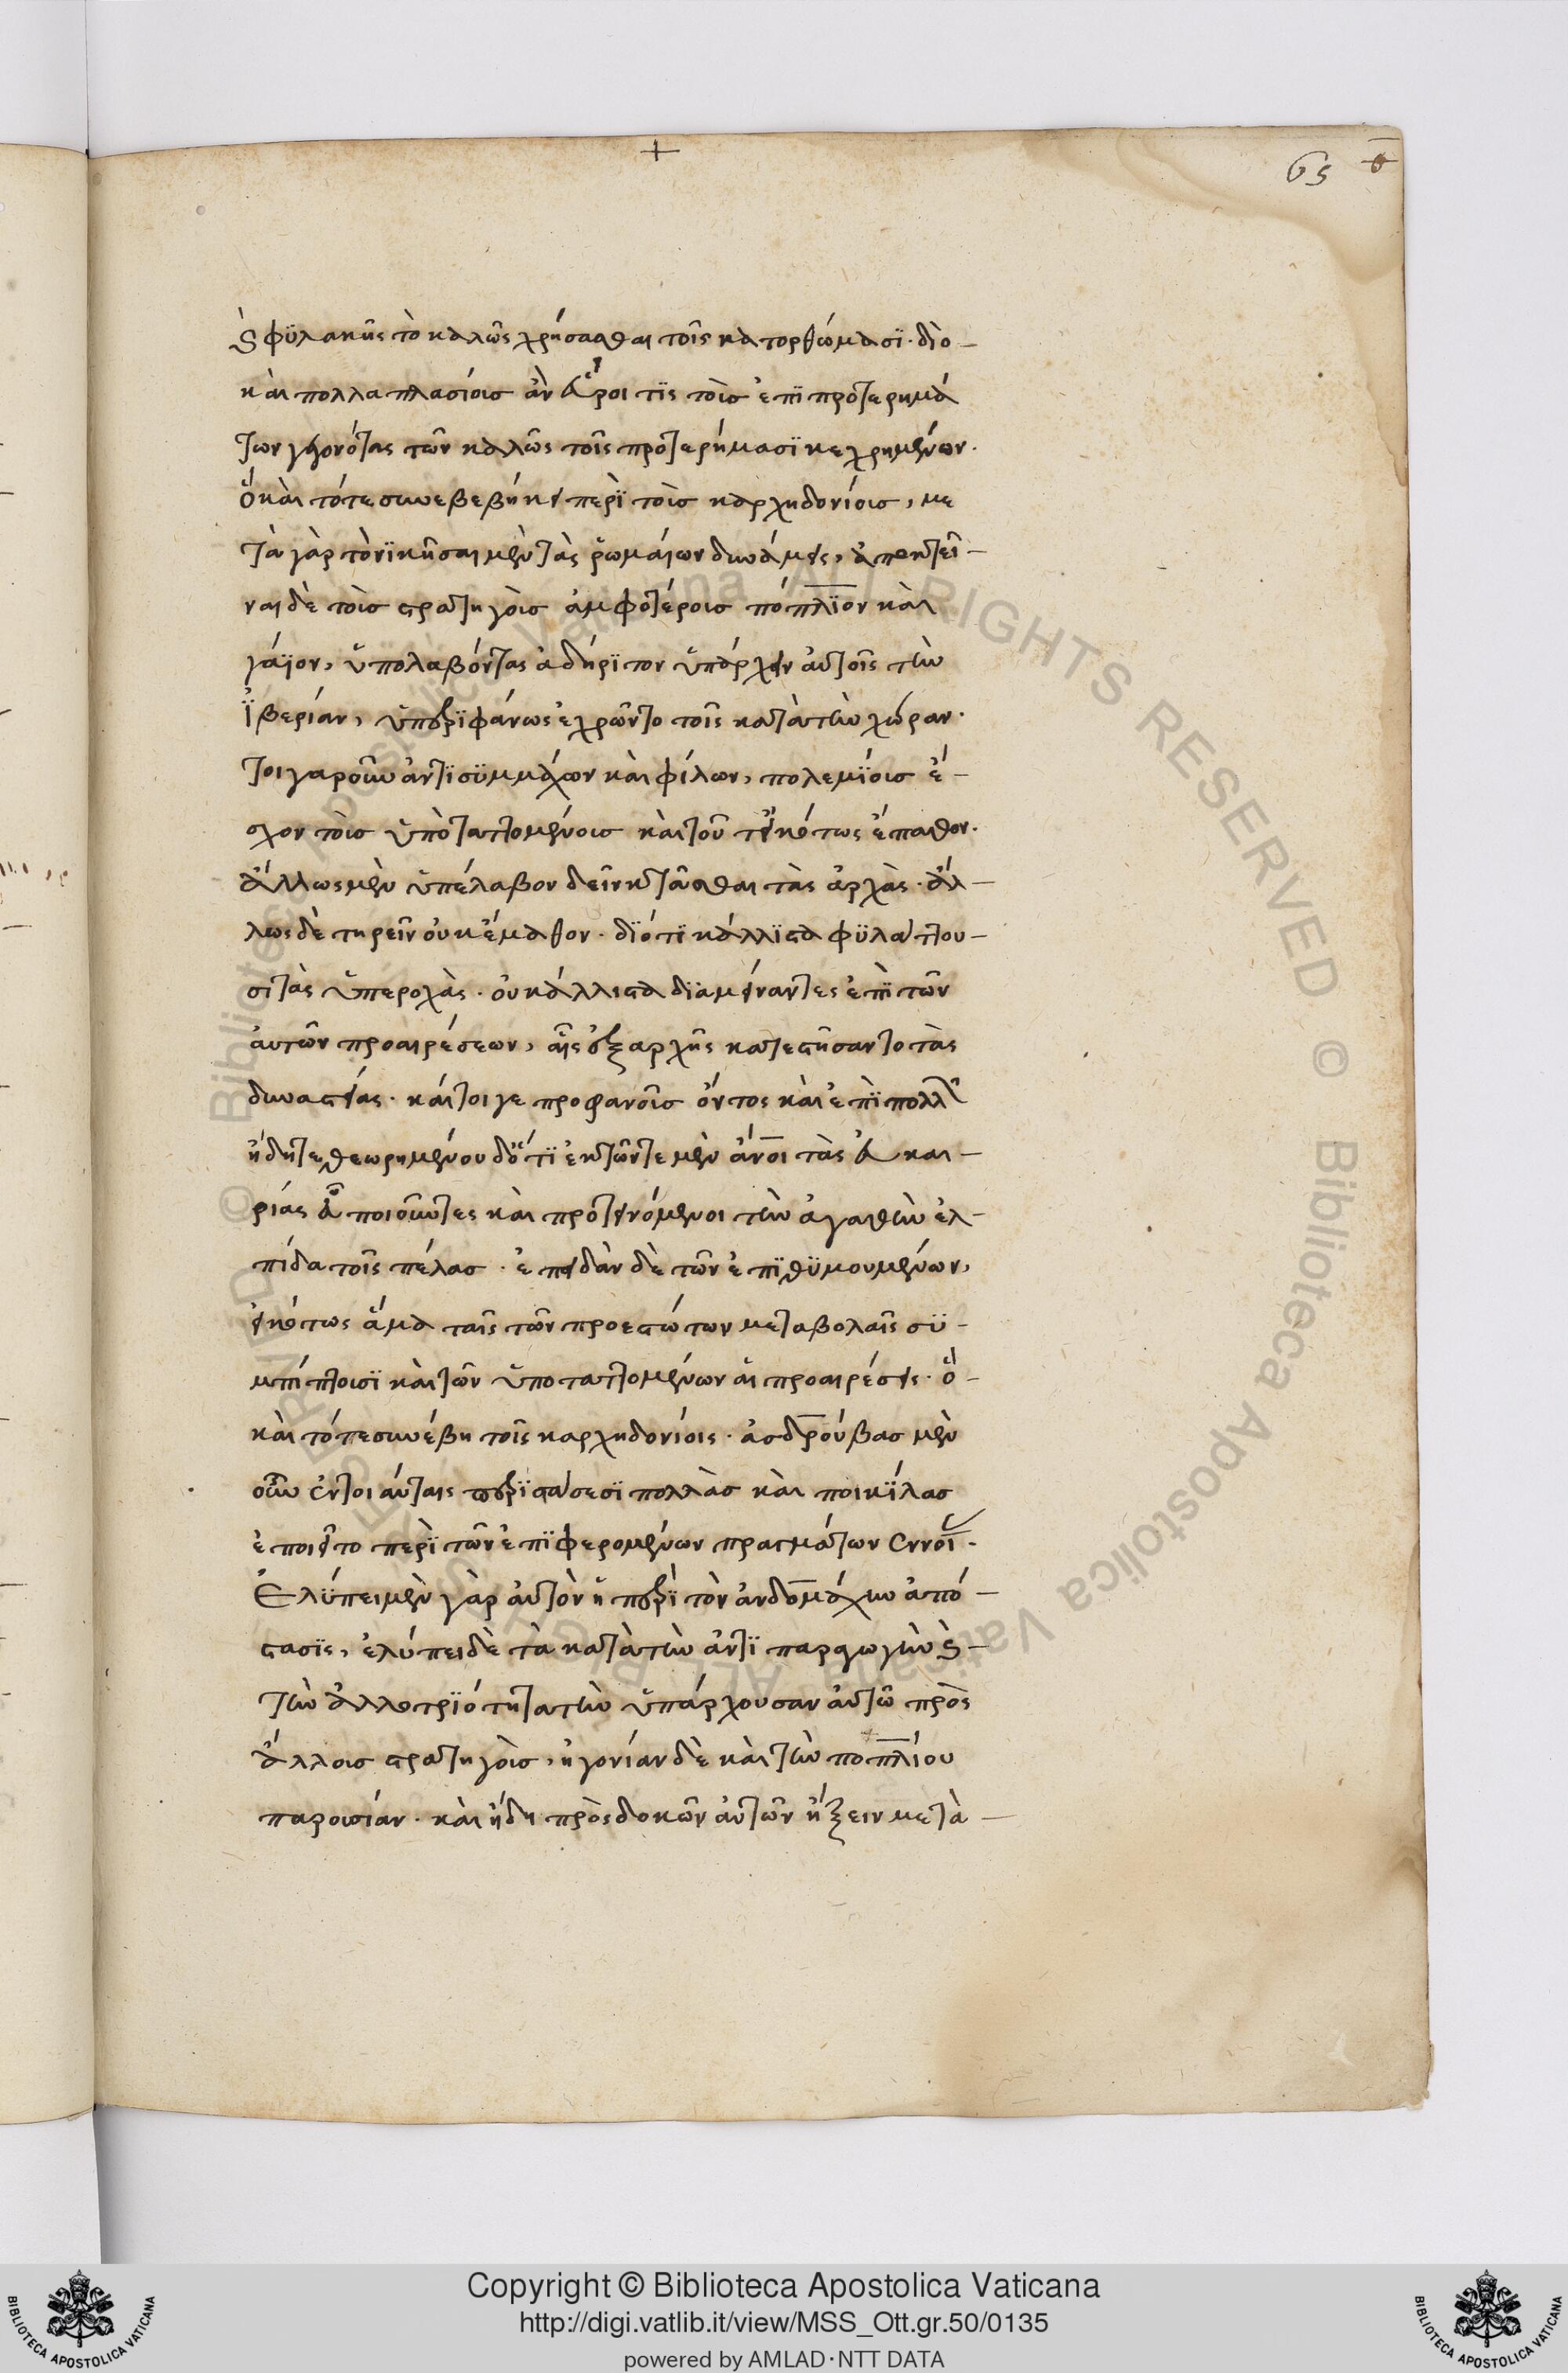 καὶ φϋλακῆς τὸ καλῶς χρήσασθαι τοῖς κατορθώμασϊ· διὸ-
καὶ πολλαπλασίοις ἂν εὕροι τϊς τοὺς ἐπὶ προτερημά
των γεγονότας τῶν καλῶς τοῖς προτερήμασϊ κεχρημένων.
ὃ καὶ τότε συνεβεβήκει περὶ τοὺς καρχηδονίους, με
τὰ γὰρ τὸ νϊκῆσαι μὲν τὰς ῥωμαίων δυνάμεις, ἀποκτεῖ-
ναι δὲ τοὺς στρατηγοὺς ἀμφοτέρους πόπλϊον καὶ
γάϊον, ὑπολαβόντας ἀδήρϊτον ὑπάρχειν αὐτοῖς τὴν
ἰβερίαν, ὑπερϊφάνως ἐχρῶντο τοῖς κατὰ τὴν χώραν.
τοιγαροῦν ἀντϊ σϋμμάχων καὶ φίλων, πολεμϊόις ἔ-
σχον τοὺς ὑπὸταττομένους καὶ τοῦτ' εἰκότως ἔπαθον.
ἄλλως μὲν ὑπέλαβον δεῖν κτᾶσθαι τὰς ἀρχὰς. ἄλ-
λως δὲ τηρεῖν οὐκ ἔμαθον. δϊότϊ κάλλϊστα φϋλάττου-
σϊ τὰς ὑπεροχὰς. οὐ κάλλιστα δϊαμείναντες ἐπὶ τῶν
αὐτῶν προαιρέσεων, αἷς ἐξαρχῆς κατεστήσαντο τὰς
δυναστείας. καίτοιγε προφανοῦς ὄντος καὶ ἐπὶ πολλῶν
ἤδη τεθεωρημένου διότϊ ἐκτῶντε μὲν ἄνοι τὰς εὐκαι-
ρίας εὖ ποιοῦντες καὶ προτεινόμενοι τὴν ἀγαθὴν ἐλ-
πίδα τοῖς πέλας. ἐπειδὰν δὲ τῶν ἐπϊθϋμουμένων,
εἰκότως ἅμα ταῖς τῶν προεστώτων μεταβολαῖς σϋ-
μπίπτουσϊ καὶ τῶν ὑποταττομένων αἱ προαιρέσεις. ὃ-
καὶ τότε συνέβη τοῖς καρχηδονίοις. ἀσδρούβας μὲν
οὖν ἐν τοιαύταις περϊστάσεσϊ πολλὰς καὶ ποικϊλας
ἐποιεῖτο περὶ τῶν ἐπϊφερομένων πραγμάτων ἐννοί.
Ἐλύπει μὲν γὰρ αὐτὸν ἡ περὶ τὸν ἀνδομάχην ἀπό-
στασϊς, ἐλύπει δὲ τὰ κατὰ τὴν ἀντϊπαραγωγὴν καὶ-
τὴν ἀλλοτρϊότητα τὴν ὑπάρχουσαν αὐτῶ πρὸς
ἄλλους στρατηγοὺς, ἠγονίαν δὲ καὶ τὴν ποπλίου
παρουσίαν. καὶ ἤδη πρὸςδοκῶν αὐτῶν ἥξειν μετὰ-
65
Copyright © Biblioteca Apostolica Vaticana
http://digi.vatlib.it/view/MSS_Ott.gr.50/0135
powered by AMLAD·NTT DATA
© Biblioteca Apostolica Vaticana ALL RIGHTS RESERVED
BIBLIOTECA APOSTOLICA VATICANA
BIBLIOTECA APOSTOLICA VATICANA